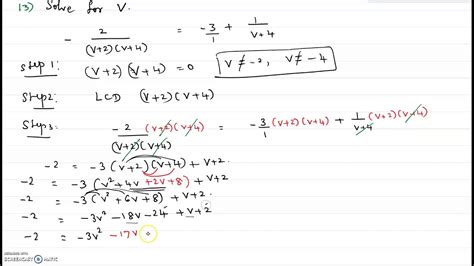 13) Solve for V.
- 2/((v+2)(v+4)) = -3/1 + 1/(v+4)
Step 1: (v+2)(v+4) = 0 v ≠ -2, v ≠ -4
Step2: LCD (v+2)(v+4)
Step3: -2/((v+2)(v+4)) (v+2)(v+4) = -3/1 (v+2)(v+4) + 1/(v+4) (v+2)(v+4)
-2 = -3(v+2)(v+4) + v+2
-2 = -3(v²+4v+2v+8) + v+2
-2 = -3(v²+6v+8) + v+2
-2 = -3v² -18v -24 + v+2
-2 = -3v² -17v
RECORDED WITH
SCREENCAST-O-MATIC